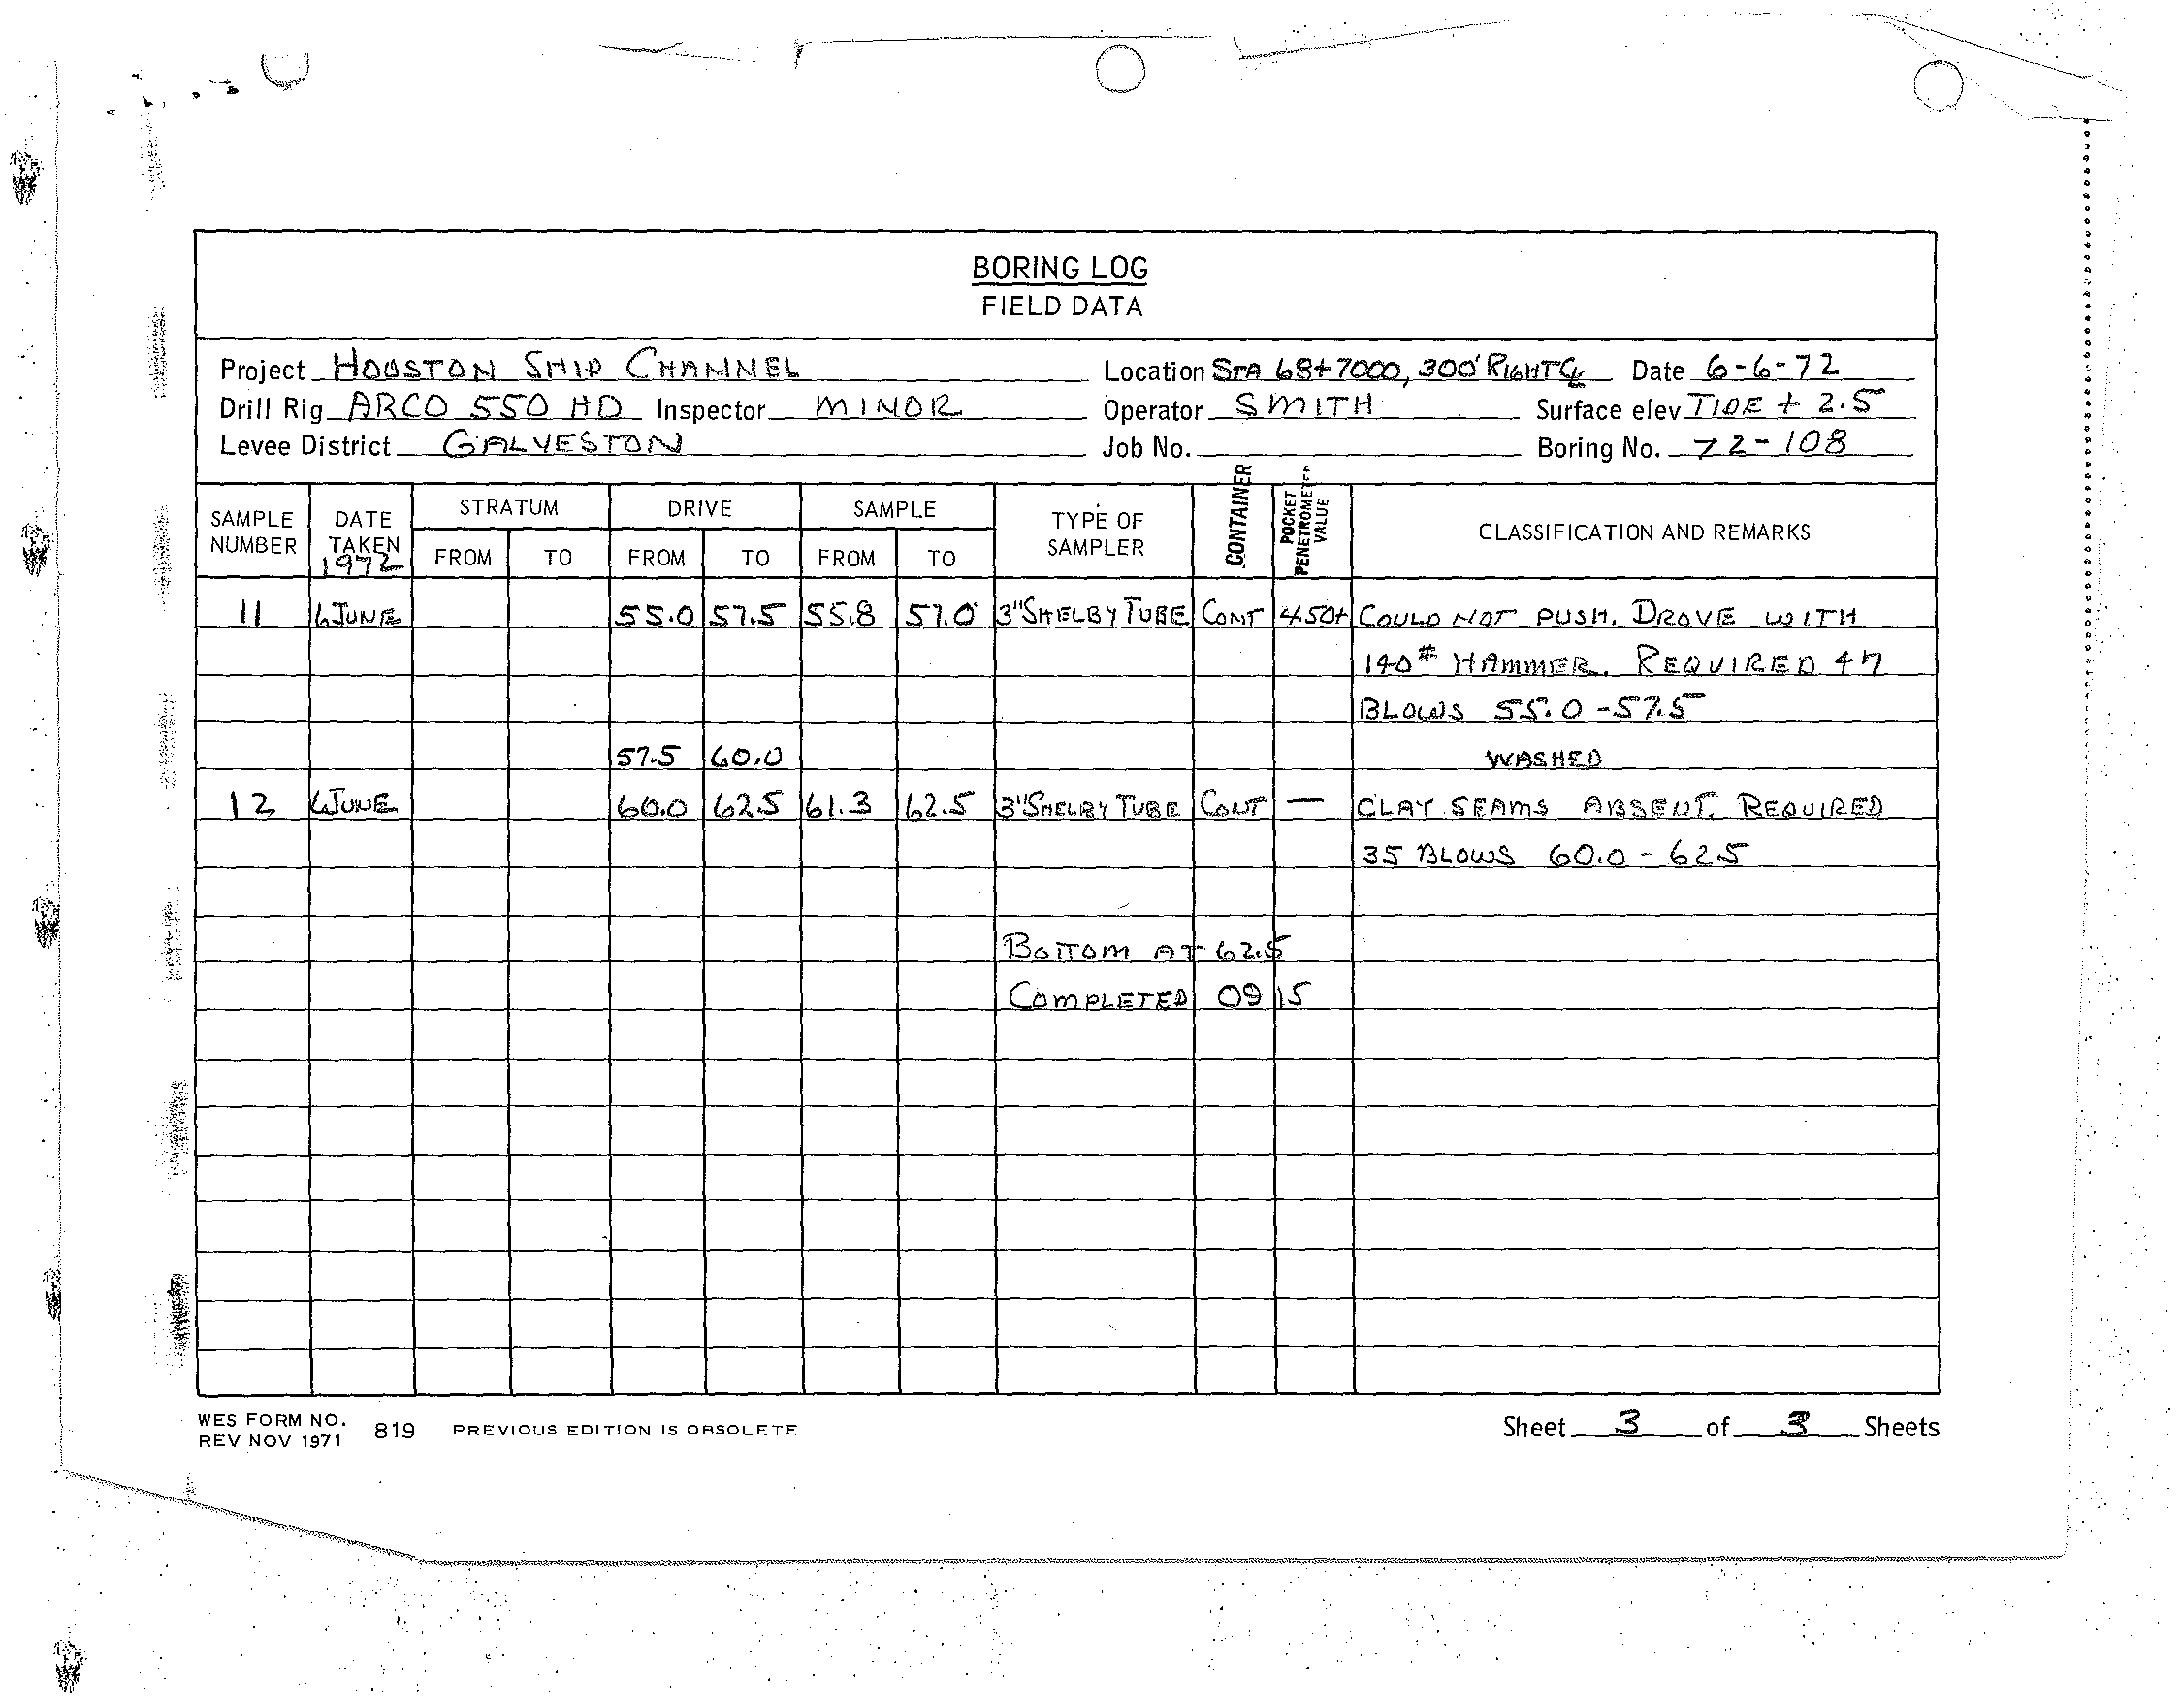 BORING LOG
FIELD DATA
Project HOUSTON SHIP CHANNEL Location STA 68+7000, 300' RIGHT ℄ Date 6-6-72
Drill Rig ARCO 550 HD Inspector MINOR Operator SMITH Surface elev TIDE + 2.5
Levee District GALVESTON Job No. Boring No. 72-108
SAMPLE NUMBER DATE TAKEN 1972 STRATUM FROM TO DRIVE FROM TO SAMPLE FROM TO TYPE OF SAMPLER CONTAINER POCKET PENETROMETER VALUE CLASSIFICATION AND REMARKS
11 6 JUNE 55.0 57.5 55.8 57.0 3" SHELBY TUBE CONT 4.50+ COULD NOT PUSH. DROVE WITH
140# HAMMER. REQUIRED 47
BLOWS 55.0-57.5
57.5 60.0 WASHED
12 6 JUNE 60.0 62.5 61.3 62.5 3" SHELBY TUBE CONT — CLAY SEAMS ABSENT. REQUIRED
35 BLOWS 60.0-62.5
BOTTOM AT 62.5
COMPLETED 0915
WES FORM NO. 819 PREVIOUS EDITION IS OBSOLETE
REV NOV 1971
Sheet 3 of 3 Sheets